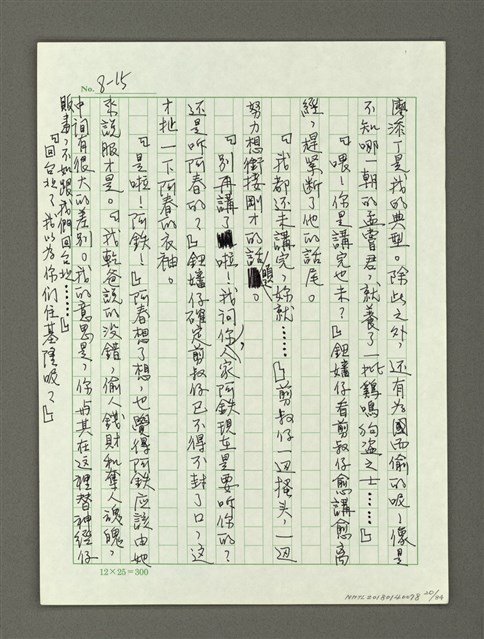 No. 8-15
廖添丁是我的典型。除此之外，還有為國而偷的呢！像是
不知哪一朝的孟嘗君，就養了一批鷄鳴狗盜之士……』
『喂！你是講完也未？』鈕嬸仔看剪叔仔愈講愈離
經，趕緊斷了他的話尾。
『我都还未講完，妳就……』剪叔仔一边掩头，一边
努力想銜接剛才的話題。
『別再講了啦！我问你，人家阿鉄現在是要听你的？
还是听阿春的？』鈕嬸仔確定剪叔仔已不得不封了口，这
才扯一下阿春的衣袖。
『是啦！阿鉄！』阿春想了想，也覺得阿鉄应該由她
來説服才是。『我乾爸説的沒錯，偷人錢財和奪人魂魄，
中间有很大的差别。我的意思是，你与其在这裡替神經仔
販毒，不如跟我們回台北……』
『回台北？我以为你们住基隆呢？』
12×25=300
NMTL20180140078 20/